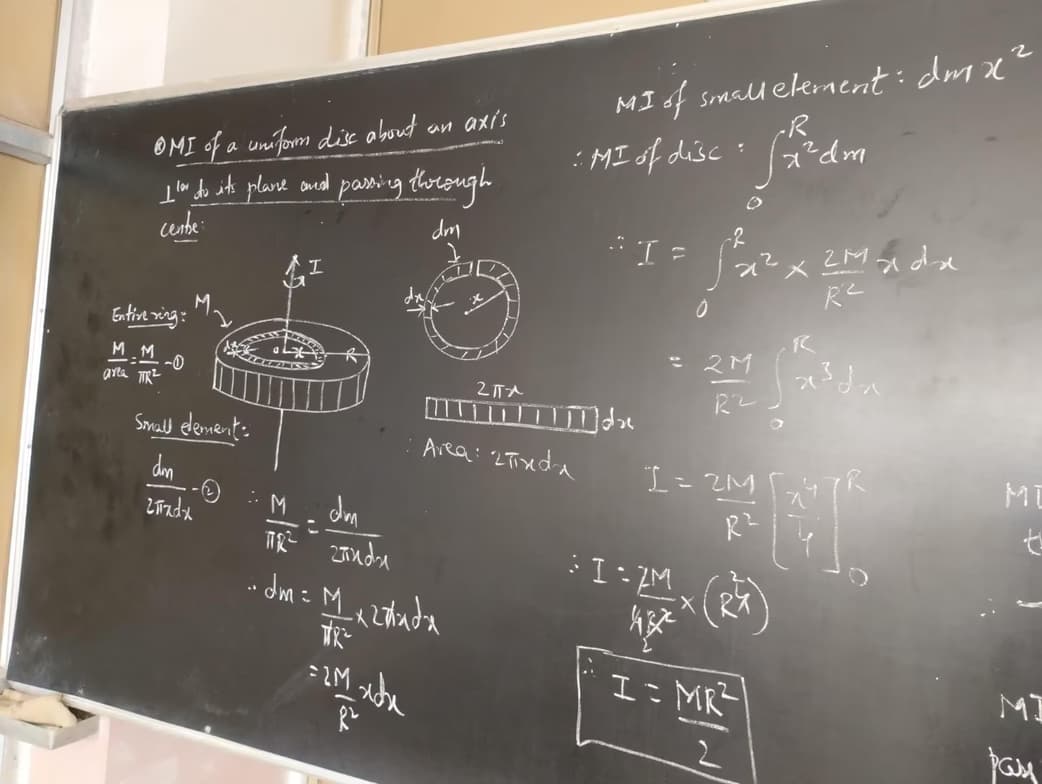 ⊗ MI of a uniform disc about an axis
⊥lar to its plane and passing through
centre:
dm
I
Entire ring:
M
dx
x
M/area = M/πR² - ①
dx
o
x
R
2πx
dx
Small element:
∴ Area: 2πxdx
dm/2πxdx - ②
∴ M/πR² = dm/2πxdx
∴ dm = M/πR² × 2πxdx
= 2M/R² xdx
MI of small element: dm x²
∴ MI of disc: ∫₀ᴿ x² dm
∴ I = ∫₀ᴿ x² × 2M/R² x dx
= 2M/R² ∫₀ᴿ x³ dx
I = 2M/R² [x⁴/4]₀ᴿ
∴ I = 2M/4R² × (R⁴)
2
2
∴ I = MR²/2
MI
t
∴
MI
pass